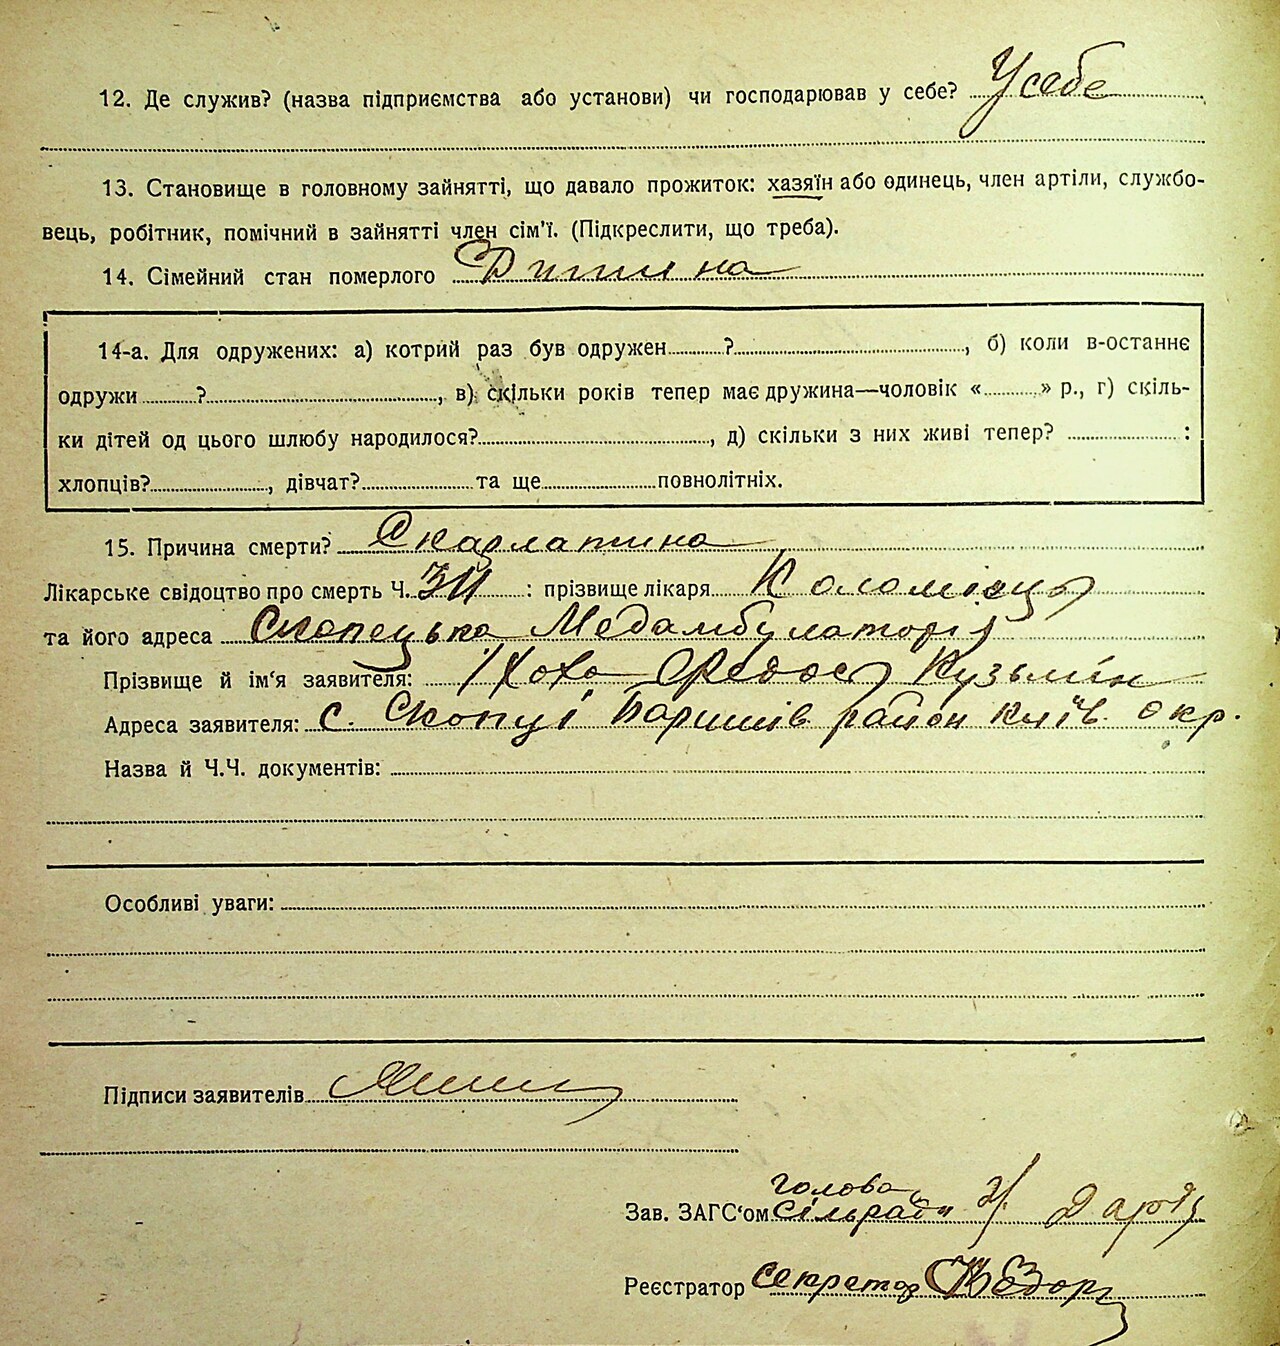 12. Де служив? (назва підприємства або установи) чи господарював у себе? У себе
13. Становище в головному зайнятті, що давало прожиток: хазяїн або одинець, член артіли, службо-
вець, робітник, помічний в зайнятті член сім'ї. (Підкреслити, що треба).
14. Сімейний стан померлого Дитина
14-а. Для одружених: а) котрий раз був одружен ? , б) коли в-останнє
одружи ? , в) скільки років тепер має дружина—чоловік « » р., г) скіль-
ки дітей од цього шлюбу народилося? , д) скільки з них живі тепер? :
хлопців? , дівчат? та ще повнолітніх.
15. Причина смерти? Скарлатина
Лікарське свідоцтво про смерть Ч. : прізвище лікаря Коломієць
та його адреса Скопецька Медамбулаторія
Прізвище й ім'я заявителя: Федос Кузьмін
Адреса заявителя: с. Скопці Баришів. район Київ. окр.
Назва й Ч.Ч. документів:
Особливі уваги:
Підписи заявителів
голова
Зав. ЗАГС'ом сільради
Реєстратор секретар